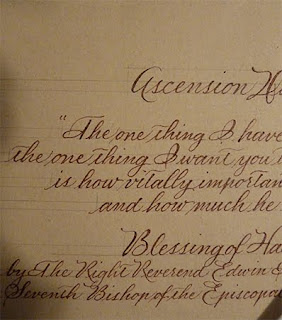 Ascension
"The one thing I have
the one thing I want you
is how vitally importan
and how much he
Blessing of Ha
by The Right Reverend Edwin
Seventh Bishop of the Episcopa